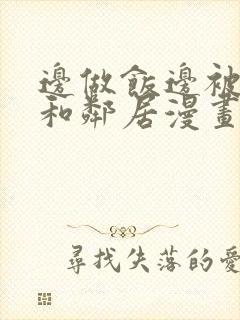 邊做飯邊被
和鄰居漫畫
尋找失落的愛